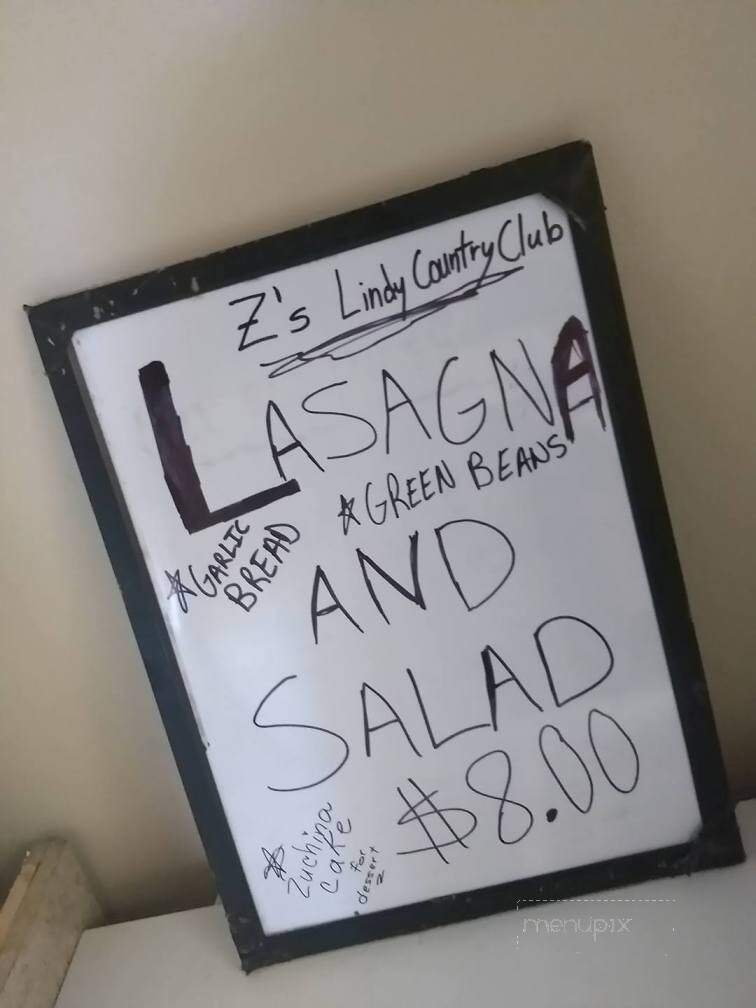 Z's Lindy Country Club
LASAGNA
*GREEN BEANS
*GARLIC
BREAD
AND
SALAD
$8.00
*Zuchina
cake
for
dessert
menupix